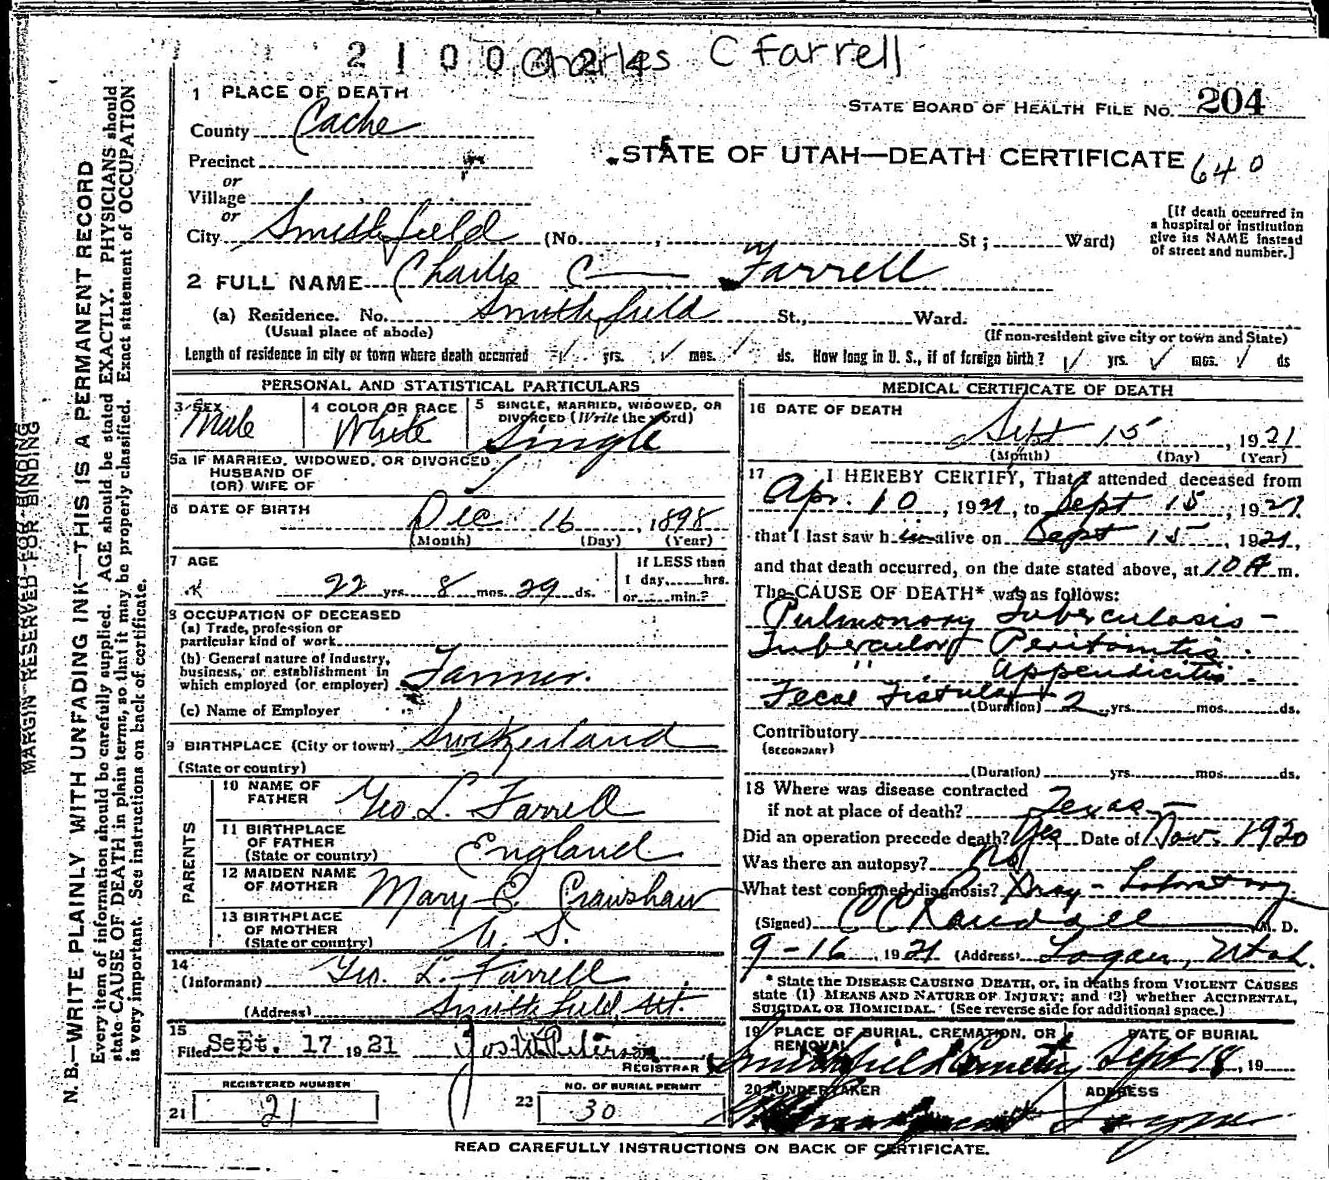 2100324 Charles C Farrell
1 PLACE OF DEATH
STATE BOARD OF HEALTH FILE NO. 204
County Cache
STATE OF UTAH—DEATH CERTIFICATE 640
Precinct
or
Village
or
City Smithfield (No. , St ; Ward)
[If death occurred in
a hospital or institution
give its NAME instead
of street and number.]
2 FULL NAME Charles C Farrell
(a) Residence. No. Smithfield St., Ward.
(Usual place of abode) (If non-resident give city or town and State)
Length of residence in city or town where death occurred yrs. mos. ds. How long in U. S., if of foreign birth? yrs. mos. ds
PERSONAL AND STATISTICAL PARTICULARS
3 SEX Male
4 COLOR OR RACE White
5 SINGLE, MARRIED, WIDOWED, OR
DIVORCED (Write the word) Single
5a IF MARRIED, WIDOWED, OR DIVORCED
HUSBAND OF
(OR) WIFE OF
6 DATE OF BIRTH Dec 16, 1898
(Month) (Day) (Year)
7 AGE 22 yrs. 8 mos. 29 ds.
If LESS than
1 day, hrs.
or min.?
8 OCCUPATION OF DECEASED
(a) Trade, profession or
particular kind of work
(b) General nature of industry,
business, or establishment in
which employed (or employer) Farmer.
(c) Name of Employer
9 BIRTHPLACE (City or town) Switzerland
(State or country)
PARENTS
10 NAME OF
FATHER Geo L. Farrell
11 BIRTHPLACE
OF FATHER
(State or country) England
12 MAIDEN NAME
OF MOTHER Mary E. Crawshaw
13 BIRTHPLACE
OF MOTHER
(State or country) U. S.
14
(Informant) Geo. L. Farrell
(Address) Smithfield, Ut.
15
Filed Sept. 17 1921 Jos W Peterson
REGISTRAR
REGISTERED NUMBER
21 21
NO. OF BURIAL PERMIT
22 30
MEDICAL CERTIFICATE OF DEATH
16 DATE OF DEATH
Sept 15, 1921
(Month) (Day) (Year)
17 I HEREBY CERTIFY, That I attended deceased from
Apr. 10, 1921, to Sept 15, 1921,
that I last saw h im alive on Sept 15, 1921,
and that death occurred, on the date stated above, at 10 A m.
The CAUSE OF DEATH* was as follows:
Pulmonory Tuberculosis -
Tubercular Peritonitis.
" Appendicitis.
Fecal Fistula (Duration) 2 yrs. mos. ds.
Contributory
(SECONDARY)
(Duration) yrs. mos. ds.
18 Where was disease contracted
if not at place of death? Texas
Did an operation precede death? Yes Date of Nov. 1920
Was there an autopsy? No
What test confirmed diagnosis? Xray - Laboratory
(Signed) C C Randall M. D.
9-16 1921 (Address) Logan, Utah.
* State the DISEASE CAUSING DEATH, or, in deaths from VIOLENT CAUSES
state (1) MEANS AND NATURE OF INJURY; and (2) whether ACCIDENTAL,
SUICIDAL OR HOMICIDAL. (See reverse side for additional space.)
19 PLACE OF BURIAL, CREMATION, OR
REMOVAL
Smithfield Cemetery
DATE OF BURIAL
Sept 18, 19
20 UNDERTAKER
ADDRESS
Logan
READ CAREFULLY INSTRUCTIONS ON BACK OF CERTIFICATE.
MARGIN RESERVED FOR BINDING
N. B.—WRITE PLAINLY WITH UNFADING INK—THIS IS A PERMANENT RECORD
Every item of information should be carefully supplied. AGE should be stated EXACTLY. PHYSICIANS should
state CAUSE OF DEATH in plain terms, so that it may be properly classified. Exact statement of OCCUPATION
is very important. See instructions on back of certificate.